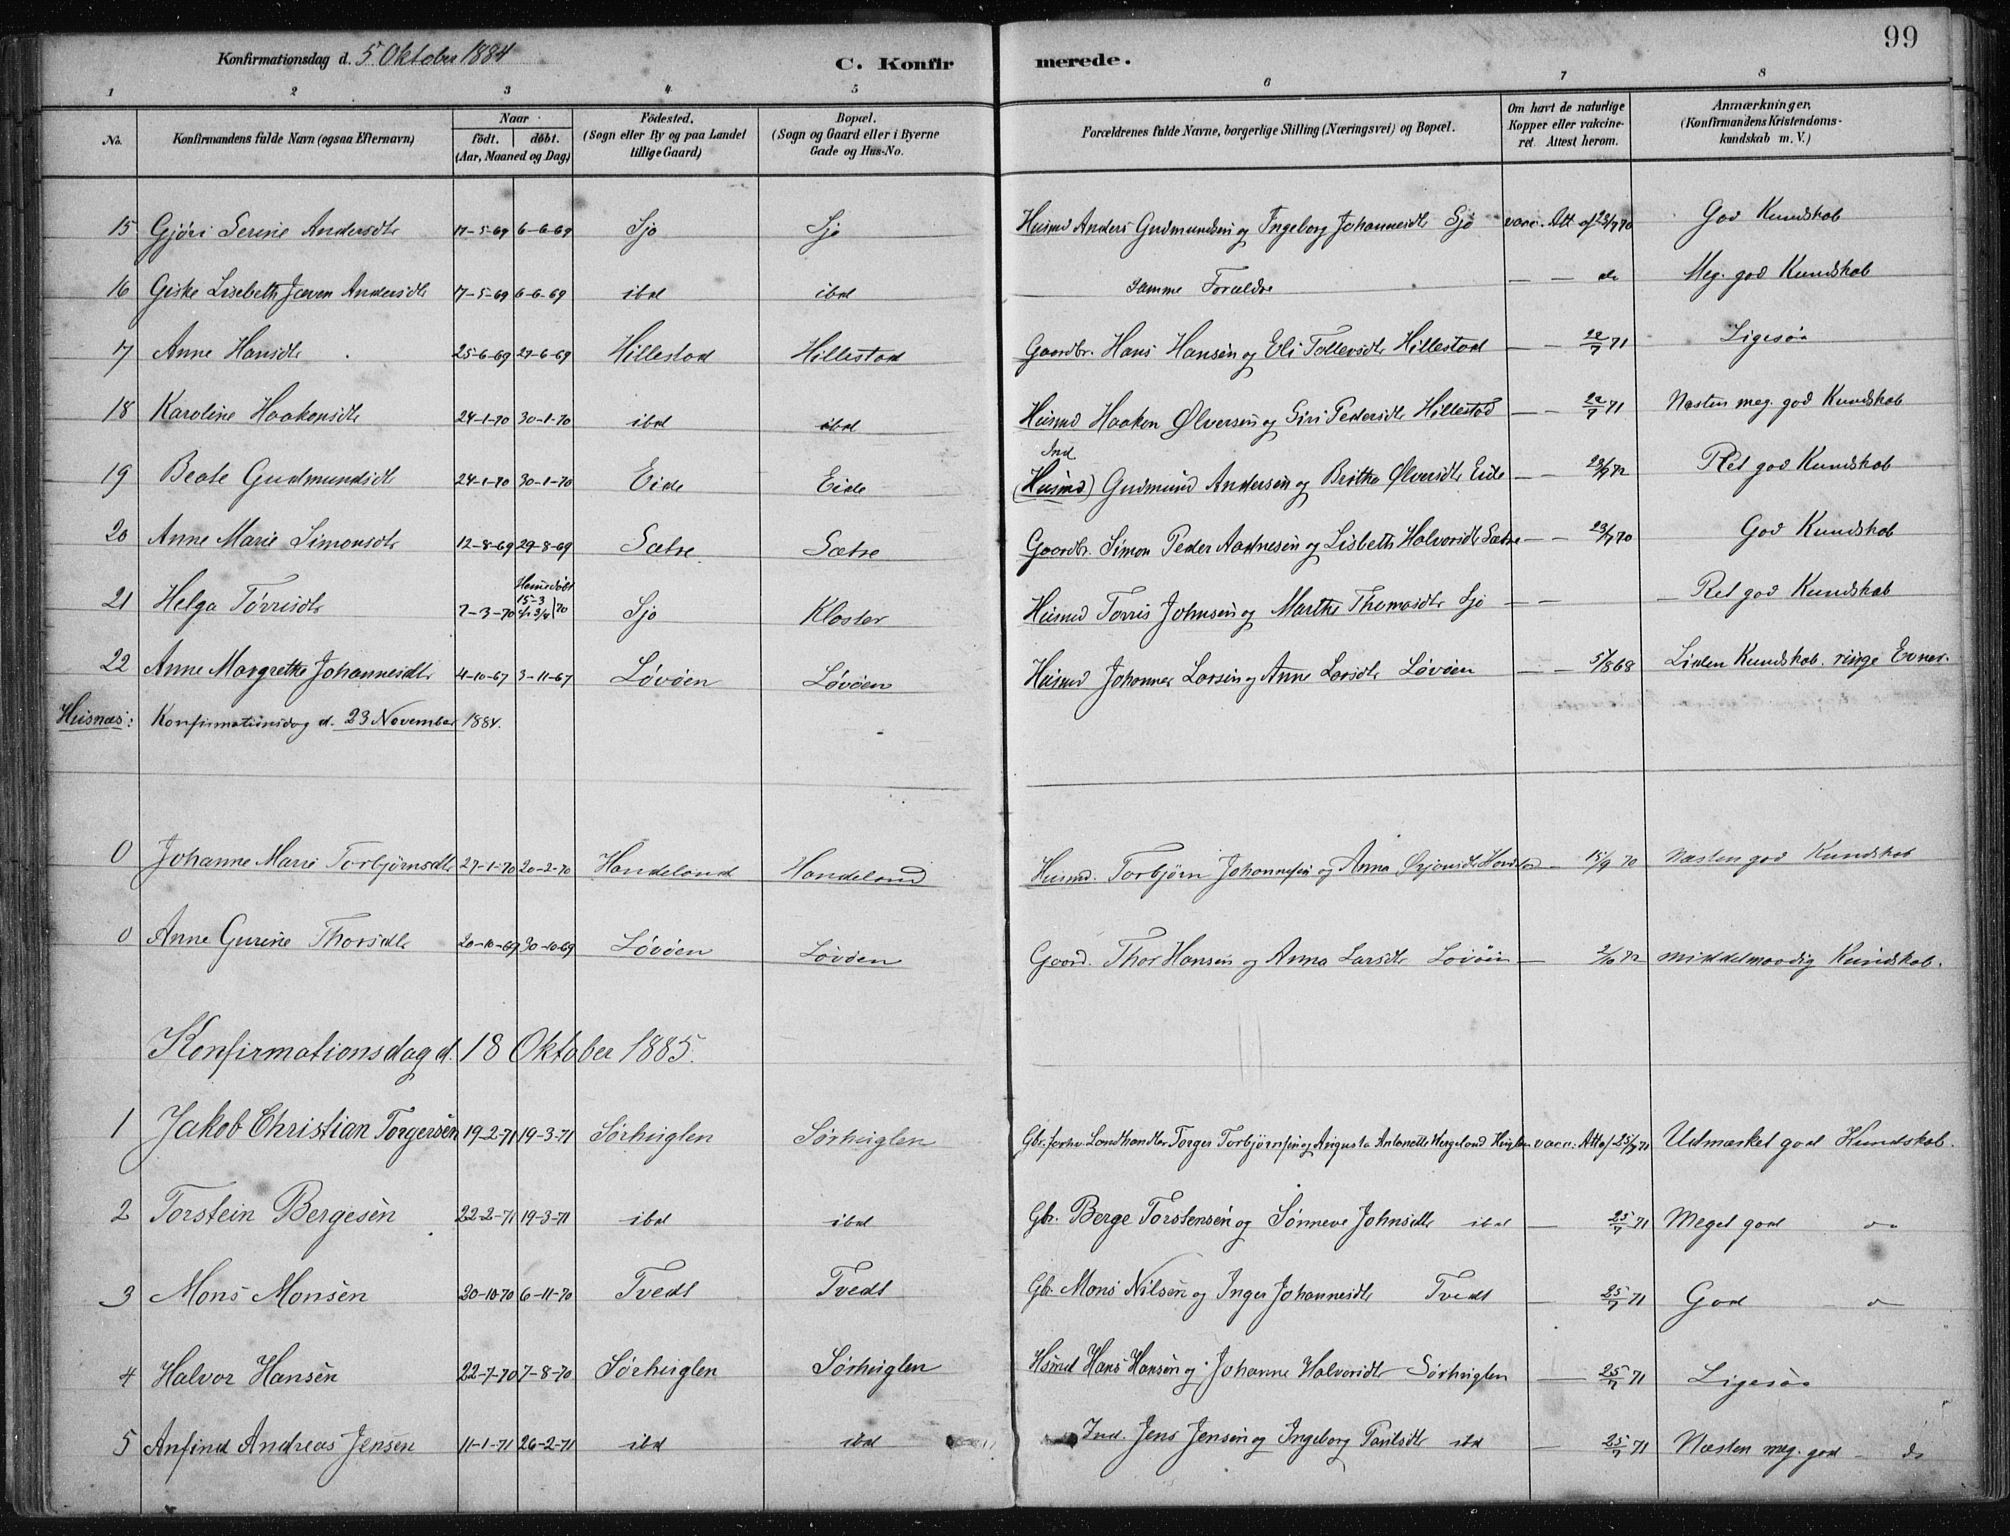 99
Konfirmationsdag d. 5 Oktober 1884
C. Konfirmerede.
1 2 3 4 5 6 7 8
No. Konfirmandens fulde Navn (ogsaa Efternavn) Naar født. døbt. (Aar, Maaned og Dag) Fødested. (Sogn eller By og paa Landet tillige Gaard) Bopæl. (Sogn og Gaard eller i Byerne Gade og Hus-No. Forældrenes fulde Navne, borgerlige Stilling (Næringsvei) og Bopæl. Om havt de naturlige Kopper eller vakcineret. Attest herom. Anmærkninger, (Konfirmandens Kristendomskundskab m. V.)
15 Gjøri Serine Andersdtr 17-5-69 6-6-69 Sjo Sjo Husmd Anders Gudmundsen og Ingeborg Johannesdtr Sjo vacc. Att. af 23/7 70 God Kundskab
16 Giske Lisebeth Andersdtr 17-5-69 6-6-69 ibd ibd samme Forældre — — do Meg. god Kundskab
17 Anne Hansdtr 25-6-69 27-6-69 Hillestad Hillestad Gaardbr. Hans Hansen og Eli Tollevsdtr Hillestad — — 22/7 71 Ligesaa
18 Karoline Haakensdtr 24-1-70 30-1-70 ibd ibd Husmd Haaken Ølversen og Siri Pedersdtr Hillestad — — 22/7 71 Næsten meg. god Kundskab
19 Beate Gudmundsdtr 24-1-70 30-1-70 Eide Eide Ind. (Husmd) Gudmund Andersen og Britha Ølversdtr Eide — — 23/9 72 Ret god Kundskab
20 Anne Marie Simonsdtr 12-8-69 29-8-69 Sætre Sætre Gaardbr. Simon Peder Aadnesen og Lisbeth Halvorsdtr Sætre — — 23/7 70 God Kundskab
21 Helga Torrisdtr 7-3-70 Hjemmedøbt 15-3 Sjo Kloster Husmd Torris Johnsen og Marthe Thomasdtr Sjo — — — Ret god Kundskab
22 Anne Margrethe Johannesdtr 4-10-67 3-11-67 Løvøen Løvøen Husmd Johannes Larsen og Anne Larsdtr Løvøen — — 5/8 68 Liden Kundskab. ringe Evner.
Husnæs: Konfirmationsdag d. 23 November 1884.
0 Johanne Marie Torbjørnsdtr 27-1-70 20-2-70 Handeland Handeland Husmd. Torbjørn Johannesen og Anna Ørjansdtr — 15/9 70 Næsten god Kundskab
0 Anne Gurine Thorsdtr 20-10-69 30-10-69 Løvøen Løvøen Gaard. Thor Hansen og Anna Larsdtr Løvøen — 2/10 72 middelmaadig Kundskab.
Konfirmationsdag d. 18 Oktober 1885.
1 Jakob Christian Torgersen 19-2-71 19-3-71 Sørhuglen Sørhuglen Gbr. forhv. Landhandler Torger Torbjørnsen og Augusta Antonette Wergeland Huglen vacc. Att. af 25/7 71 Udmærket god Kundskab.
2 Torstein Bergesen 22-2-71 19-3-71 ibd ibd Gbr. Berge Torstensen og Sønneve Johnsdtr ibd — 25/7 71 Meget god do
3 Mons Monsen 20-10-70 6-11-70 Tvedt Tvedt Gbr. Mons Nilsen og Inger Johannesdtr Tvedt — 25/7 71 God — do
4 Halvor Hansen 22-7-70 7-8-70 Sørhuglen Sørhuglen Hsmd Hans Hansen og Johanne Halvorsdtr Sørhuglen — 25/7 71 Ligesaa
5 Anfind Andreas Jensen 11-1-71 26-2-71 ibd ibd Ind. Jens Jensen og Ingeborg Paulsdtr ibd — 25/7 71 Næsten meg. god — do